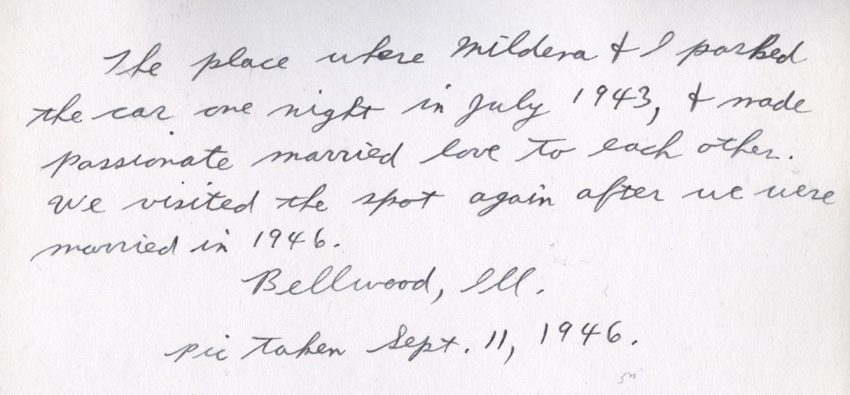 The place where Mildena & I parked
the car one night in July 1943, & made
passionate married love to each other.
We visited the spot again after we were
married in 1946.
Bellwood, Ill.
pic taken Sept. 11, 1946.